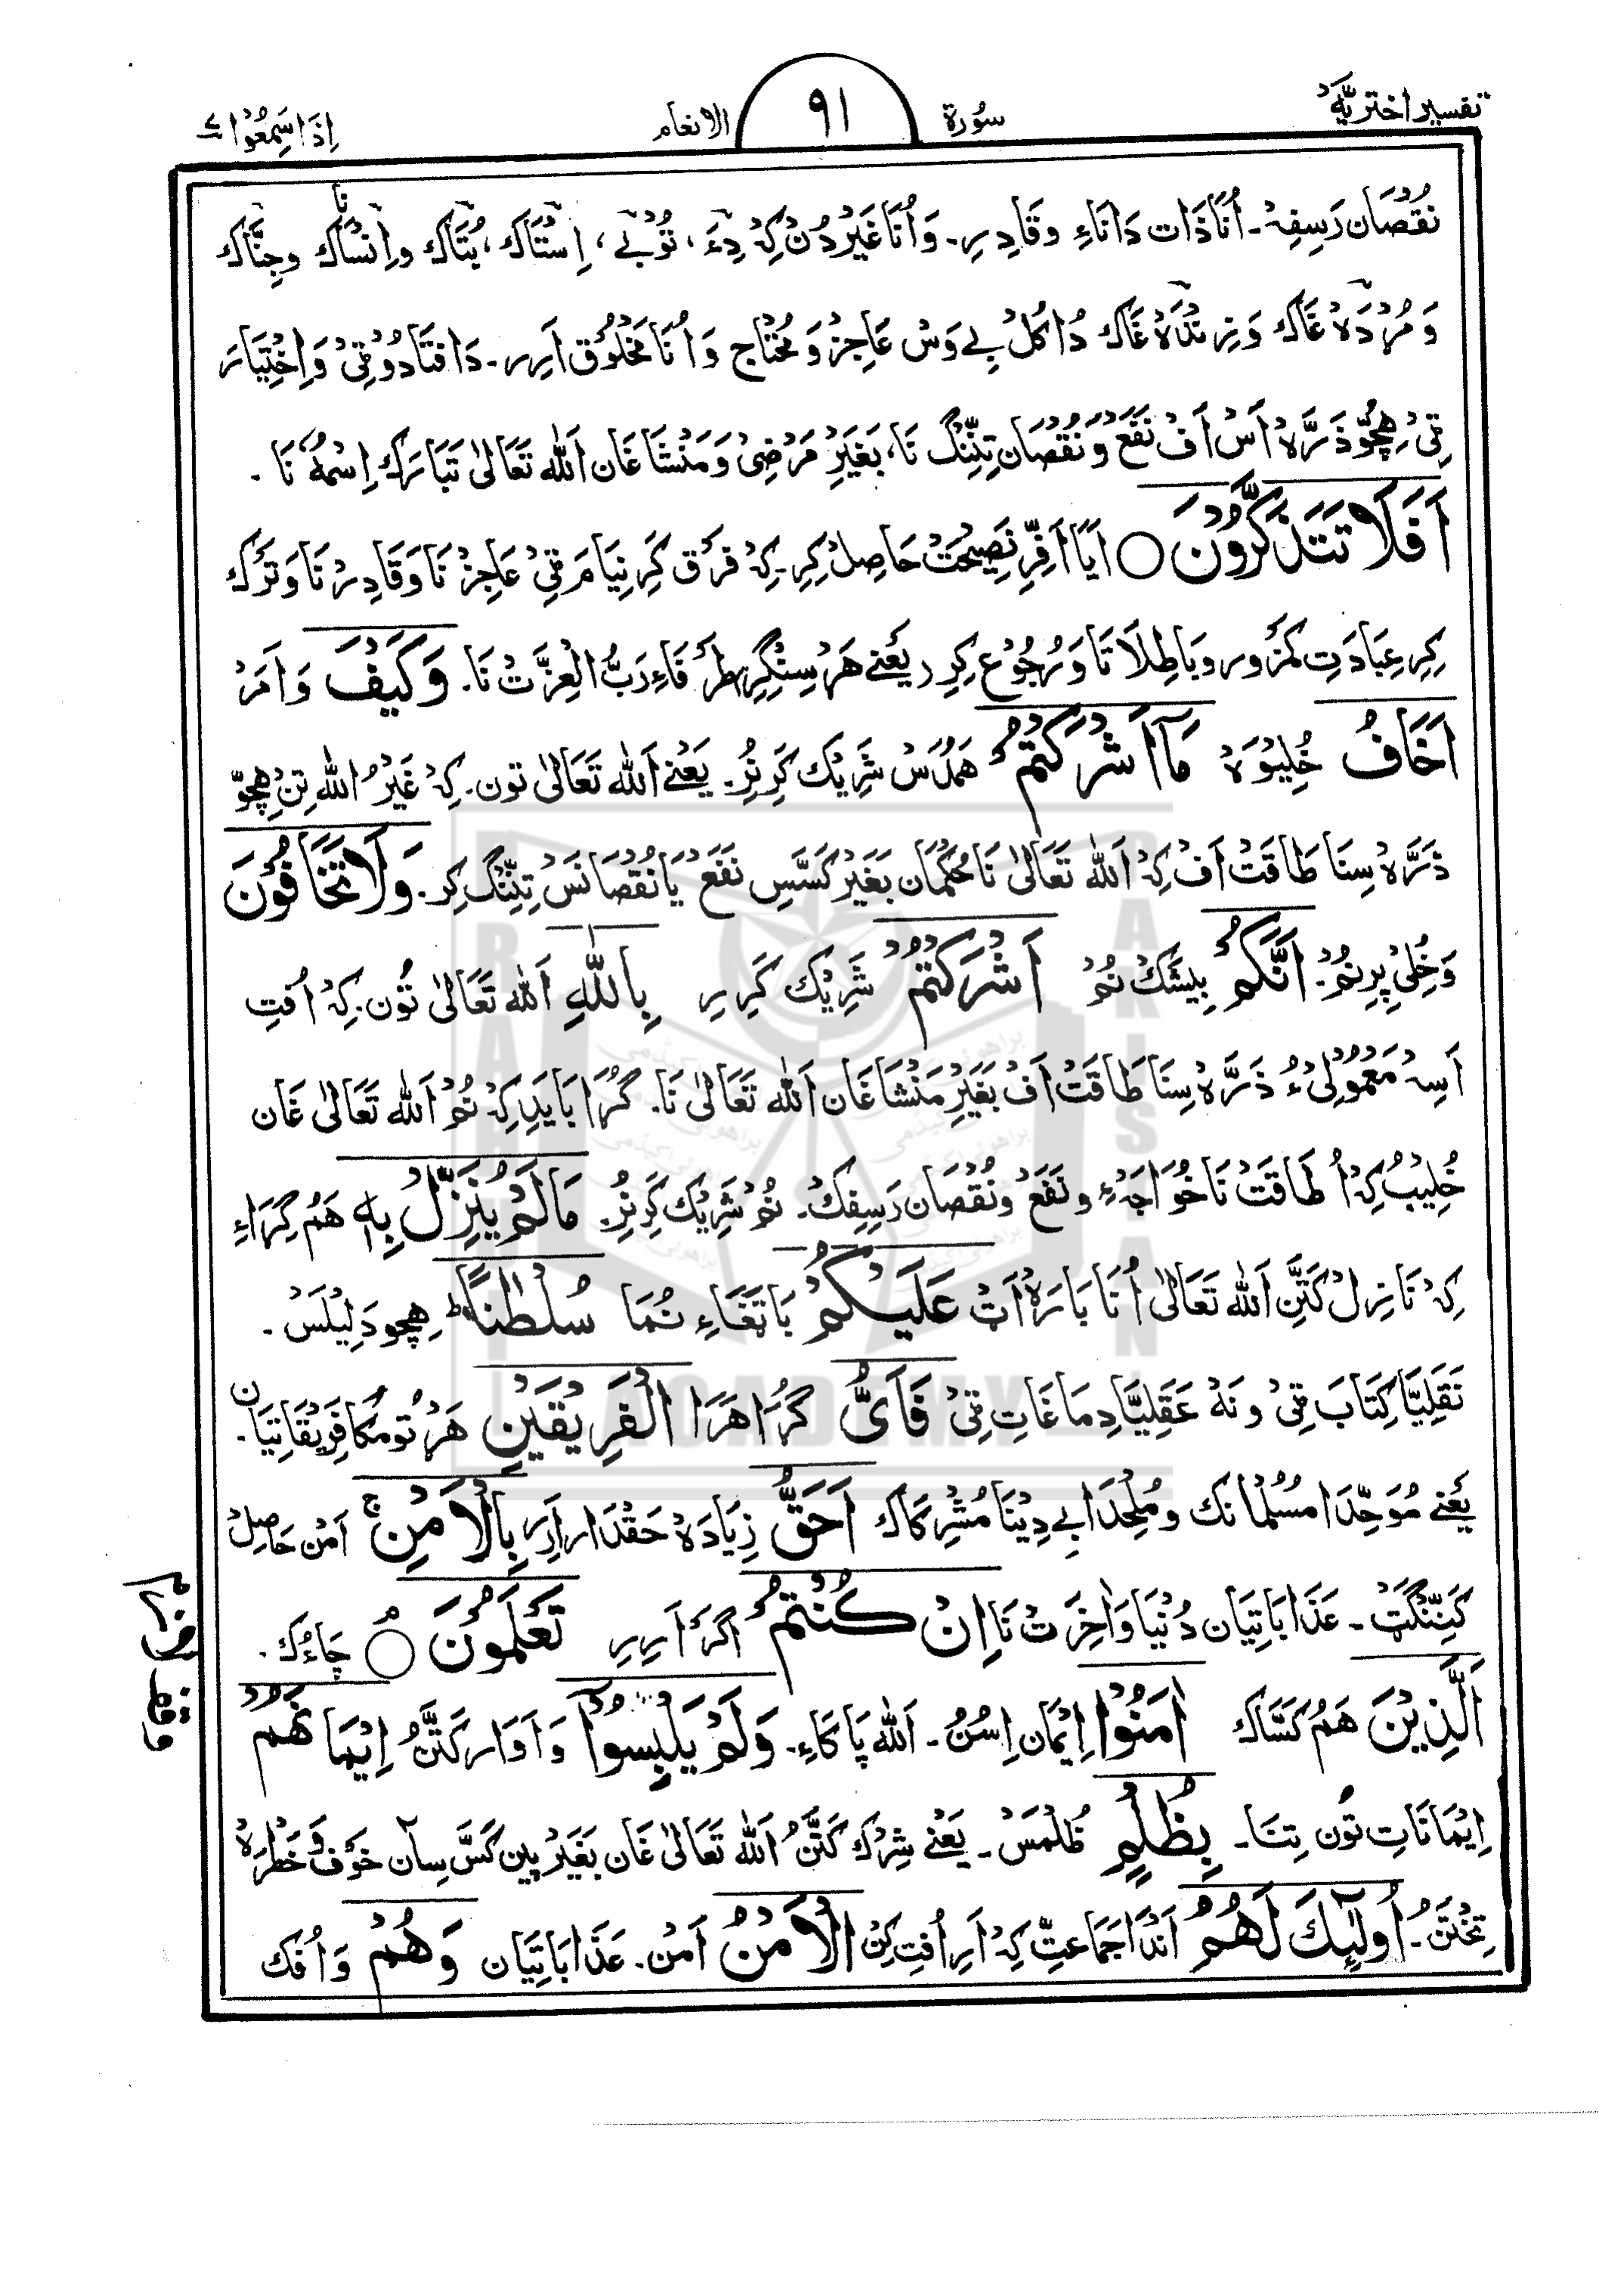 تفسیر اختریّہ
سُورة
۹۱
الانعام
اِذَا سَمِعُوا ۷
نُقْصَان رَسِفِہ۔ اُنَا ذَات دَانَاءِ وقَادِرِ۔ وَاُنَا غَیْر دُنْ کِہْ دِےَ، تُوْبے، اِسْتَاک، بُتَاک واِنْسَاناک وجِنَّاک
وَمُرْدَہْ غَاک وَزِنْدَہْ غَاک دُاکُل بے وَسْ عَاجِزْ وَمُحْتَاج وَاُنَا مَخْلُوْق اَرِر۔ دَافتَا دُوْتِیْ وَاِخْتِیَارَ
تِیْ ہِچُّو ذَرَّہْ اَسْ اَفْ نَفَعْ وَنُقْصَان تِنِّنْگ نَا، بَغَیْرِ مَرْضِیْ وَمَنْشَا غَان اَللّٰہ تَعَالیٰ تَبَارَک اِسْمُہٗ نَا۔
اَفَلَا تَتَذَكَّرُوْنَ ○ اَیَا اَفِرّ نَصِیْحَتْ حَاصِلْ کِرِ۔ کِہْ فَرْق کَرِ نِیَامَ تِیْ عَاجِزْ نَا وَقَادِرْ نَا وَتَرْک
کِرِ عِبَادَتِ کَمْزُور وبَاطِلَاتَا وَرُجُوْع کِرِ یَعْنے ہَرْسِنْگِر طَرْفَاءِ رَبُّ الْعِزَّتْ نَا۔ وَكَيْفَ وَاَمَرْ
اَخَافُ خُلِیْوَہْ مَآ اَشْرَكْتُمْ ہَمْدُسْ شَرِیْک کَرِنُر۔ یَعْنے اَللّٰہ تَعَالیٰ تون۔ کِہْ غَیْرُ اللّٰہ تِنْ ہِچُّو
ذَرَّہْ سِنَا طَاقَتْ اَفْ کِہْ اَللّٰہ تَعَالیٰ نَا حُکْمَان بَغَیْر کَسَّسِ نَفَعْ یَا نُقْصَانَسْ تِنِّنْگ کِر۔ وَلَا تَخَافُوْنَ
وَخُلِیْ پِرِنُمْ۔ اَنَّكُمْ بِیشَکْ نُمْ اَشْرَكْتُمْ شَرِیْک کَرِرِ بِاللّٰهِ اَللّٰہ تَعَالیٰ تُون۔ کِہْ اُفتِ
اَسِہْ مَعْمُوْلِیْءُ ذَرَّہْ سِنَا طَاقَتْ اَفْ بَغَیْرِ مَنْشَا غَان اَللّٰہ تَعَالیٰ نَا۔ گُرَا بَایَدِ کِہْ نُمْ اَللّٰہ تَعَالیٰ غَان
خُلِیْبُ کِہْ اُ طَاقَتْ نَا خُوَاجَہْءِ ونَفَعْ ونُقْصَان رَسِفِکْ۔ نُمْ شَرِیْک کَرِنُر۔ مَا لَمْ يُنَزِّلْ بِهٖ ہَمْ گِرَاءِ
کِہْ نَازِلْ کَتَنِّ اَللّٰہ تَعَالیٰ اُنَا بَارَہْ اَتْ عَلَيْكُمْ بَاتِغَاءِ نُمَا سُلْطٰنًا ؕ ہِچو دَلِیْلَسْ۔
نَقَلِیَّا کِتَابَ تِیْ ونَہْ عَقَلِیَّا دِمَاغَاتِ تِیْ فَاَيُّ گُرَا ہَرَا الْفَرِيْقَيْنِ ہَرْتُومکَا فَرِیْقَاتِیَان۔
یَعْنے مُوَحِّدَا مُسُلْمَانک ومُلْحِدَا بے دِیْنَا مُشْرِکَاک اَحَقُّ زِیَادَہْ حَقْدَار اَرِر بِالْاَمْنِ ۚ اَمْن حَاصِلْ
کَنِنْگتِ۔ عَذَابَاتِیَان دُنْیَا وَاٰخِرَتْ نَا اِنْ كُنْتُمْ اَگَر اَرِرِ تَعْلَمُوْنَ ○ چَاءُک۔
اَلَّذِيْنَ ہَمْ کَسَّاک اٰمَنُوْا اِیْمَان اِسُنْ۔ اَللّٰہ پَاکَاءِ۔ وَلَمْ يَلْبِسُوْٓا وَاَوَار کَتَنُّ اِيْمَانَهُمْ
اِیْمَانَاتِ تُون تِنَا۔ بِظُلْمٍ ظُلْمَسْ۔ یَعْنے شِرْک کَتَنُّ اَللّٰہ تَعَالیٰ غَان بَغَیْر پین کَسَّ سِان خَوْف وَخَطْرَہْ
تِخْتَنُ۔ اُولٰٓئِكَ لَهُمُ اَنْدَا جَمَاعتِّ کِہْ اَرِ اُفتِ کِنْ الْاَمْنُ اَمْن۔ عَذَابَاتِیَان وَهُمْ وَاُفک